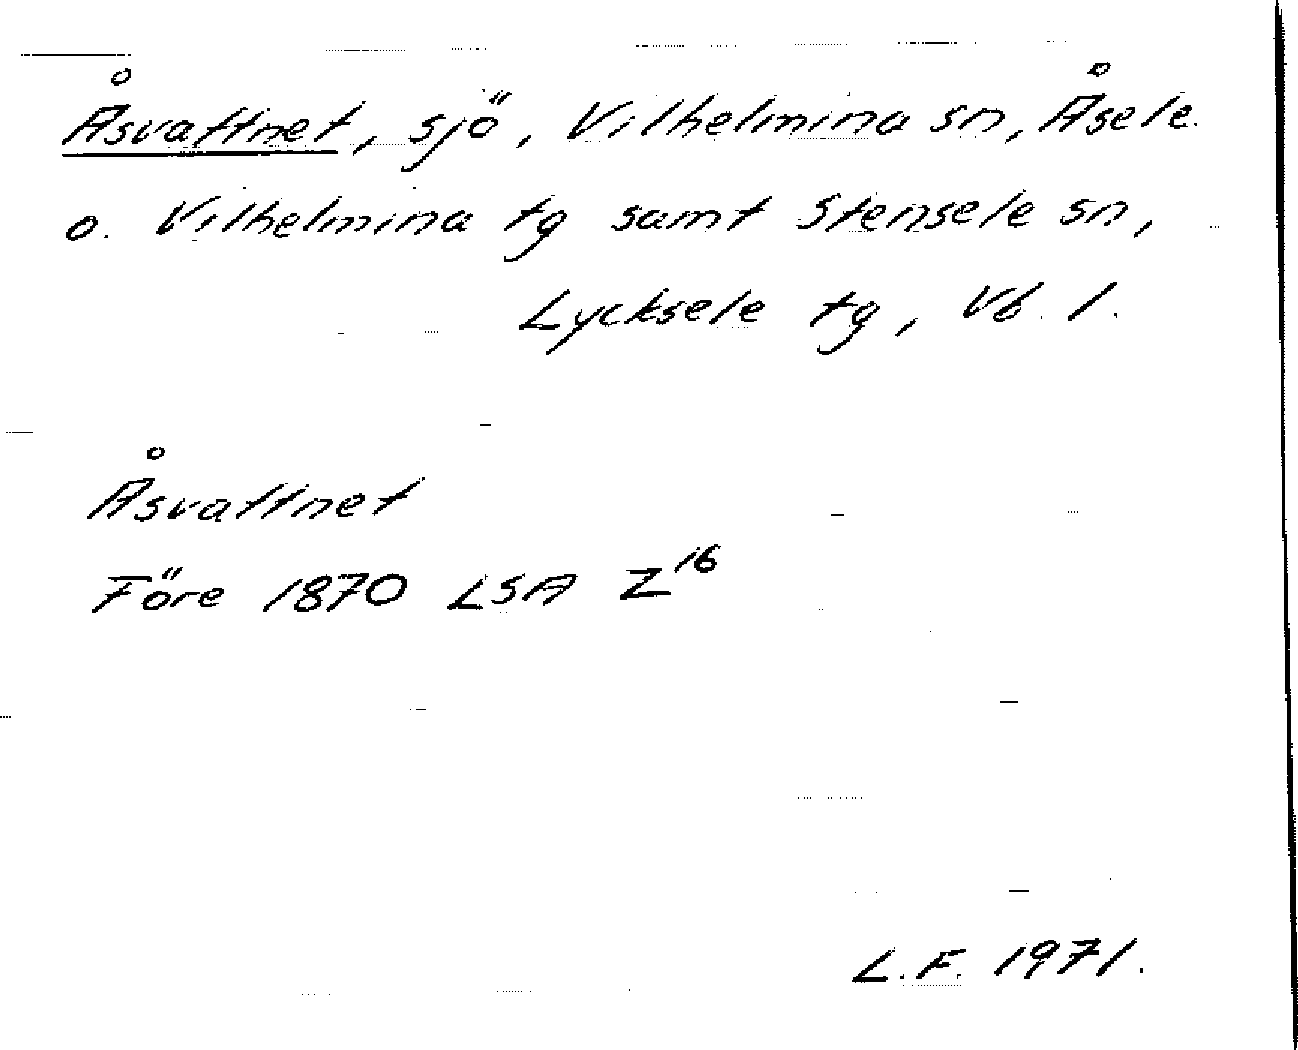 Åsvattnet, sjö, Vilhelmina sn, Åsele
o. Vilhelmina tg samt Stensele sn,
Lycksele tg, Vb. l.
Åsvattnet
Före 1870 LSA Z¹⁶
L.F. 1971.